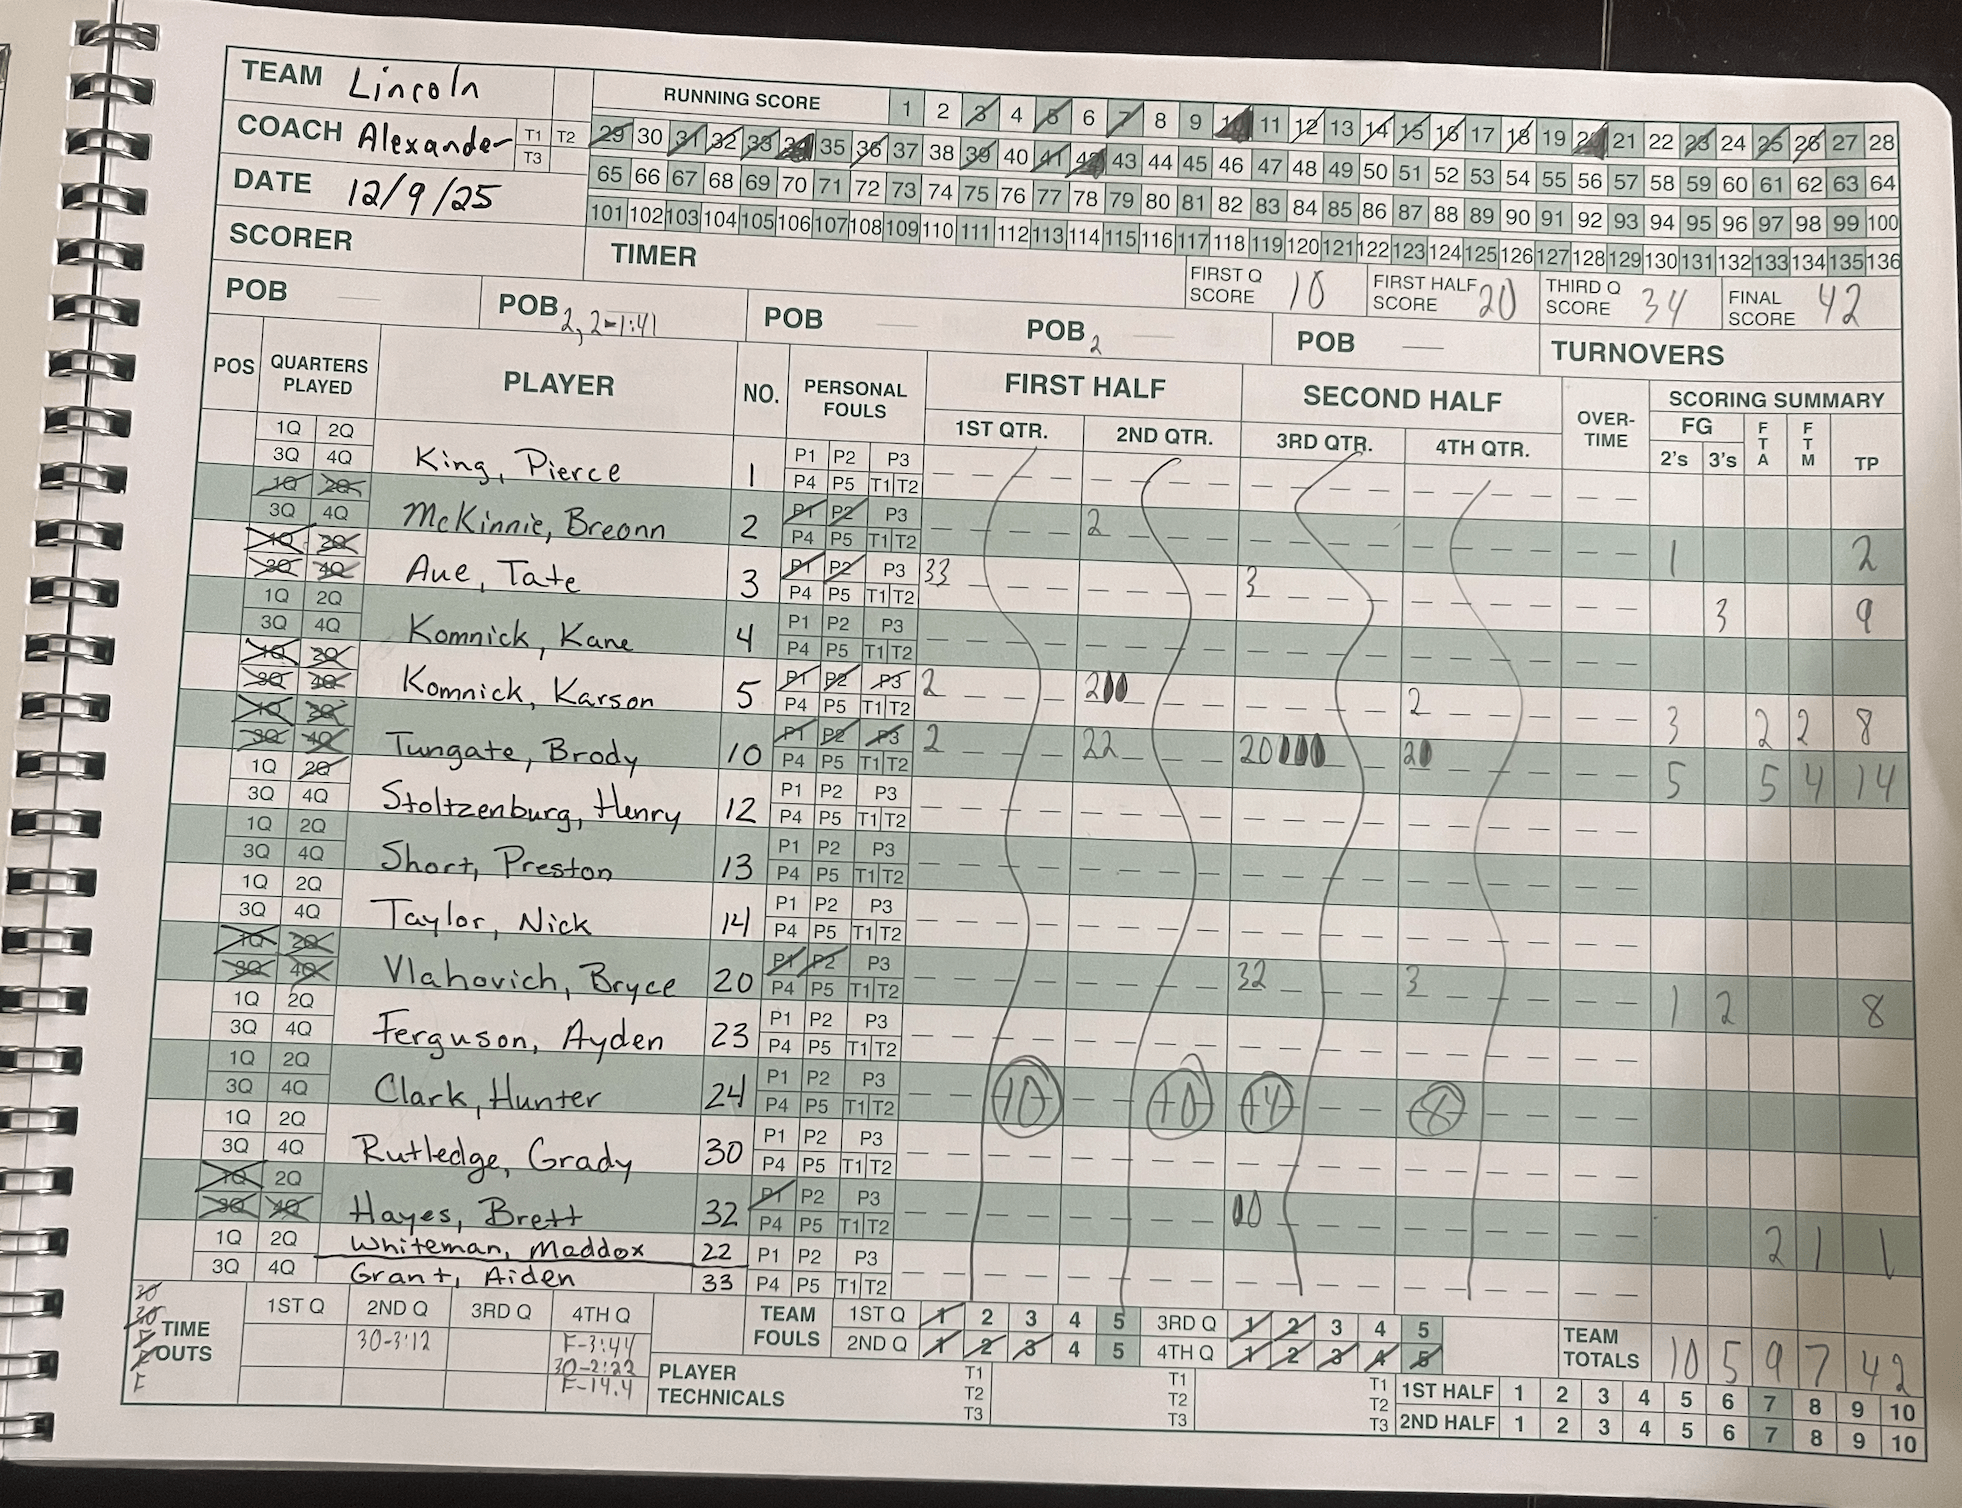 TEAM Lincoln
RUNNING SCORE 1 2 3 4 5 6 7 8 9 10 11 12 13 14 15 16 17 18 19 20 21 22 23 24 25 26 27 28
COACH Alexander T1 T2 T3
29 30 31 32 33 34 35 36 37 38 39 40 41 42 43 44 45 46 47 48 49 50 51 52 53 54 55 56 57 58 59 60 61 62 63 64
DATE 12/9/25
65 66 67 68 69 70 71 72 73 74 75 76 77 78 79 80 81 82 83 84 85 86 87 88 89 90 91 92 93 94 95 96 97 98 99 100
101 102 103 104 105 106 107 108 109 110 111 112 113 114 115 116 117 118 119 120 121 122 123 124 125 126 127 128 129 130 131 132 133 134 135 136
SCORER
TIMER
FIRST Q SCORE 10
FIRST HALF SCORE 20
THIRD Q SCORE 34
FINAL SCORE 42
POB — POB 2, 2-1:41 POB — POB 2 — POB — TURNOVERS
POS QUARTERS PLAYED PLAYER NO. PERSONAL FOULS FIRST HALF SECOND HALF OVER-TIME SCORING SUMMARY
1ST QTR. 2ND QTR. 3RD QTR. 4TH QTR. FG 2's 3's FTA FTM TP
1Q 2Q P1 P2 P3
3Q 4Q King, Pierce 1 P4 P5 T1 T2
1Q 2Q P1 P2 P3 2
3Q 4Q McKinnie, Breonn 2 P4 P5 T1 T2 1 2
1Q 2Q P1 P2 P3 33 3
3Q 4Q Aue, Tate 3 P4 P5 T1 T2 3 9
1Q 2Q P1 P2 P3
3Q 4Q Komnick, Kane 4 P4 P5 T1 T2
1Q 2Q P1 P2 P3 2 200 2
3Q 4Q Komnick, Karson 5 P4 P5 T1 T2 3 2 2 8
1Q 2Q P1 P2 P3 2 22 20000 20
3Q 4Q Tungate, Brody 10 P4 P5 T1 T2 5 5 4 14
1Q 2Q P1 P2 P3
3Q 4Q Stoltzenburg, Henry 12 P4 P5 T1 T2
1Q 2Q P1 P2 P3
3Q 4Q Short, Preston 13 P4 P5 T1 T2
1Q 2Q P1 P2 P3
3Q 4Q Taylor, Nick 14 P4 P5 T1 T2
1Q 2Q P1 P2 P3 32 3
3Q 4Q Vlahovich, Bryce 20 P4 P5 T1 T2 1 2 8
1Q 2Q P1 P2 P3
3Q 4Q Ferguson, Ayden 23 P4 P5 T1 T2
1Q 2Q P1 P2 P3
3Q 4Q Clark, Hunter 24 P4 P5 T1 T2 10 10 14 8
1Q 2Q P1 P2 P3
3Q 4Q Rutledge, Grady 30 P4 P5 T1 T2
1Q 2Q P1 P2 P3 00
3Q 4Q Hayes, Brett 32 P4 P5 T1 T2 2 1 1
1Q 2Q Whiteman, Maddox 22 P1 P2 P3
3Q 4Q Grant, Aiden 33 P4 P5 T1 T2
30
30
F
F
F
TIME OUTS 1ST Q 2ND Q 3RD Q 4TH Q
30-3:12 F-3:44
30-2:22
F-14.4
TEAM FOULS 1ST Q 1 2 3 4 5 3RD Q 1 2 3 4 5
2ND Q 1 2 3 4 5 4TH Q 1 2 3 4 5
TEAM TOTALS 10 5 9 7 42
PLAYER TECHNICALS T1 T2 T3 T1 T2 T3 T1 T2 T3
1ST HALF 1 2 3 4 5 6 7 8 9 10
2ND HALF 1 2 3 4 5 6 7 8 9 10